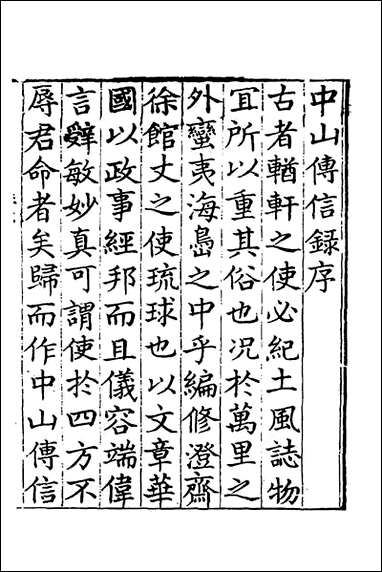 中山傳信録序
古者輶軒之使必紀土風誌物
冝所以重其俗也况於萬里之
外蠻夷海㠀之中乎編修澄齋
徐館丈之使琉球也以文章華
國以政事經邦而且儀容端偉
言辭敏妙真可謂使於四方不
辱君命者矣歸而作中山傳信